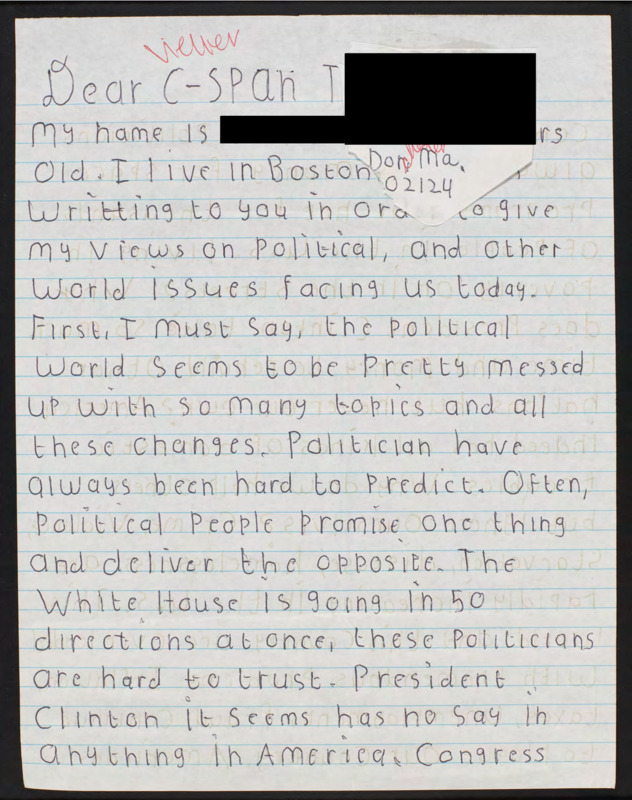 viewer
Dear C-SPAN T
My name is
rs
Old. I live in Boston
Dor, Ma.
02124
Writting to you in ord to give
my views on Political, and other
World issues facing us today.
First, I must say, the political
World seems to be Pretty messed
up with so many topics and all
these changes. Politician have
always been hard to Predict. Often,
Political People Promise one thing
and deliver the opposite. The
White House is going in 50
directions at once, these Politicians
are hard to trust. President
Clinton it seems has no say in
anything in America. Congress